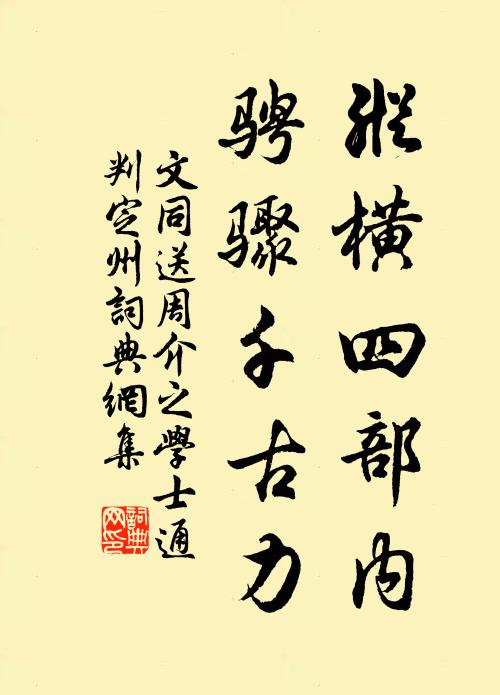 縱橫四部内
骋骤千古力
文同送周介之學士通
判定州詞典網集
詞典
网印